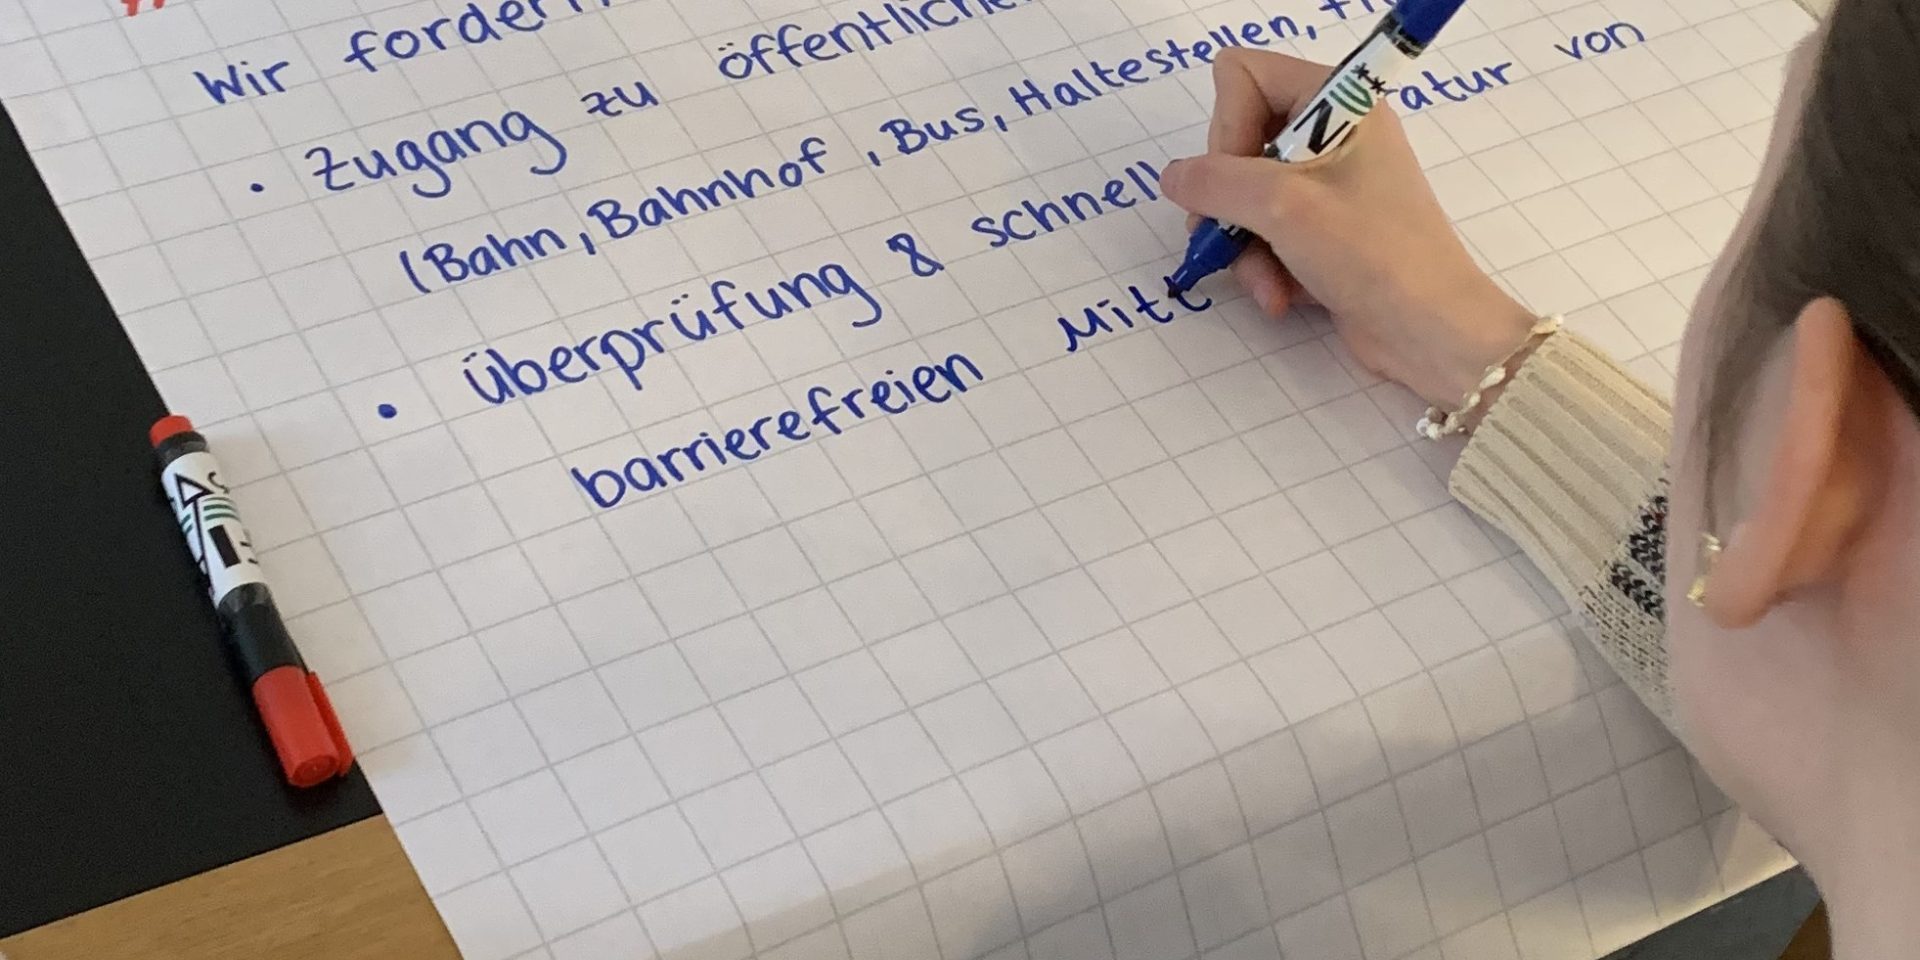 Wir fordern
• Zugang zu öffentliche
(Bahn, Bahnhof, Bus, Haltestellen,
• überprüfung & schnell atur von
barrierefreien Mitt